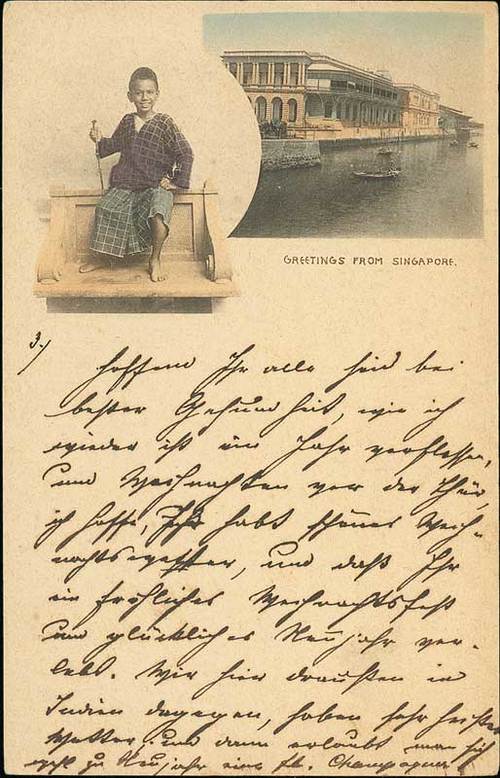 GREETINGS FROM SINGAPORE.
3)
Hoffend Ihr alle seid bei
bester Gesundheit, wie ich
wieder ist ein Jahr verflossen,
und Weihnachten vor der Thür,
ich hoffe, Ihr habt schönes Weih-
nachtswetter, und daß Ihr
ein fröhliches Weihnachtsfest
und glückliches Neujahr ver-
lebt. Wir hier draußen in
Indien dagegen, haben sehr heißes
Wetter, und dann erlaubt man sich
zu Neujahr eine fl. Champagner